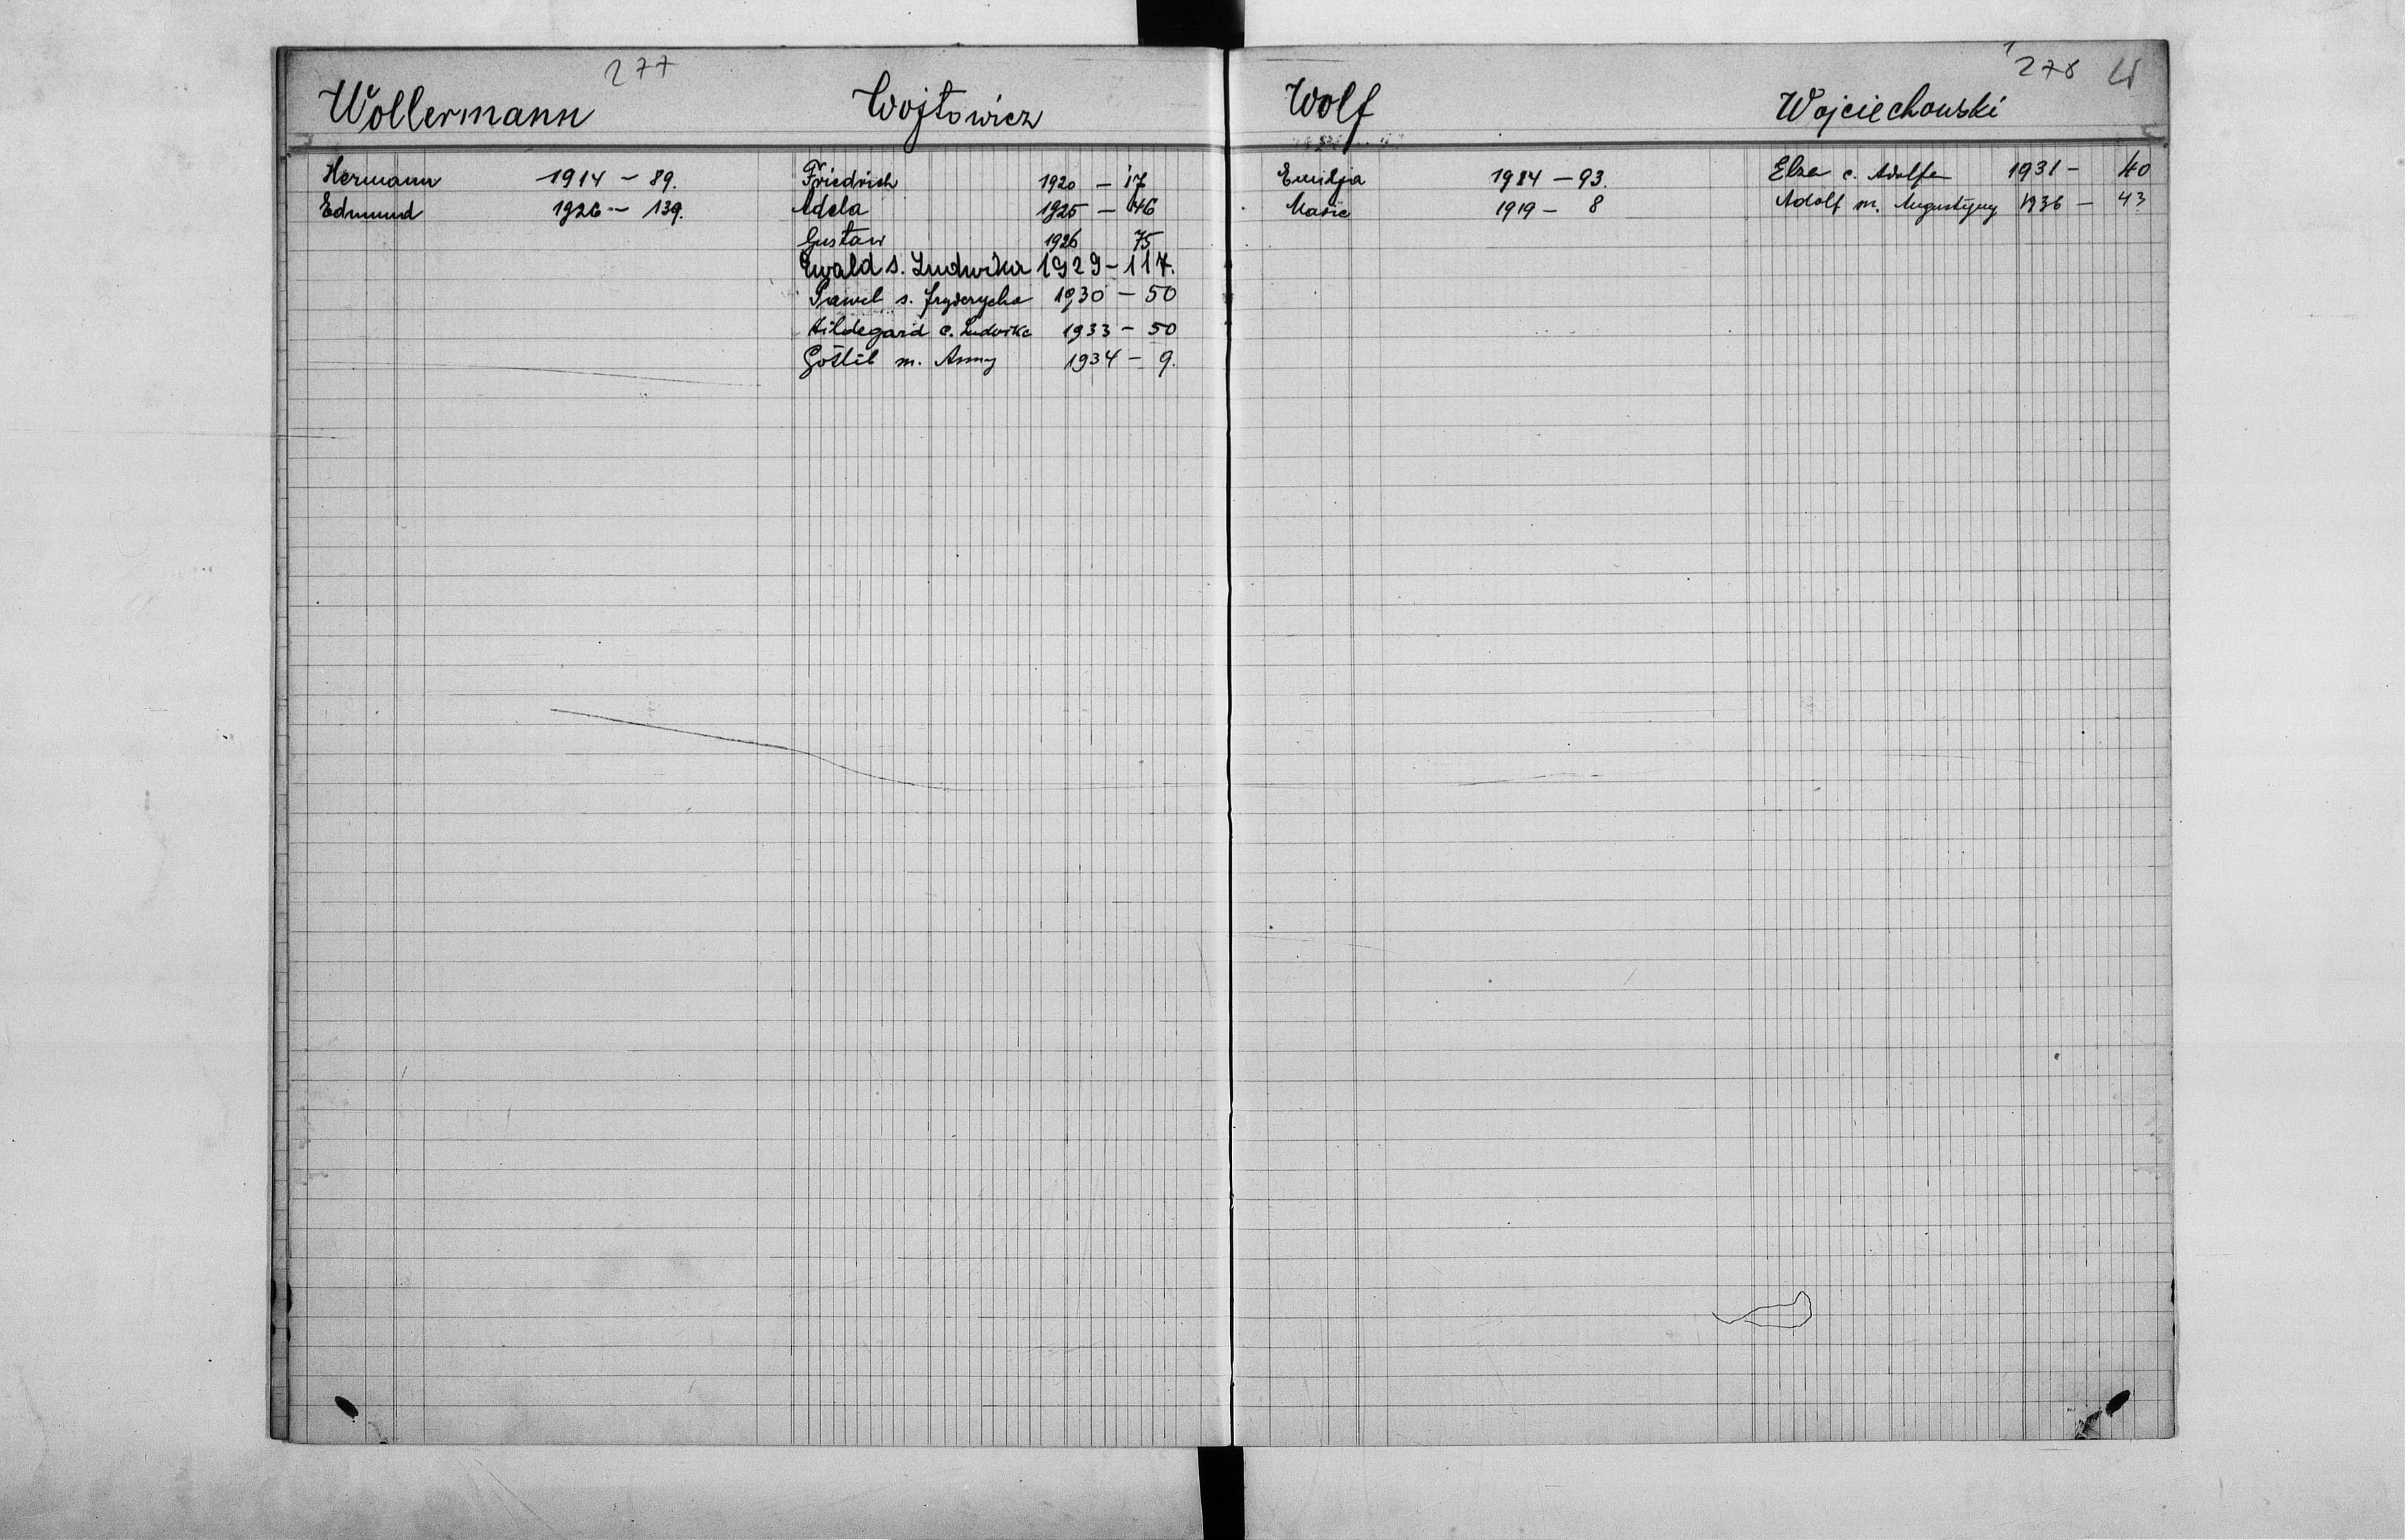 277
Wollermann
Hermann 1914 - 89.
Edmund 1926 - 139.
Wojtowicz
Friedrich 1920 - 17
Adela 1925 - 46
Gustaw 1926 75
Ewald s. Ludwika 1929 - 117.
Pawel s. Fryderycha 1930 - 50
Hildegard c. Ludwika 1933 - 50
Gotlib m. Anny 1934 - 9.
278 W
Wolf
Emilja 1914 - 93.
Marie 1919 - 8
Wojciechowski
Elza c. Adolfa 1931 - 40
Adolf m. Augustyny 1936 - 43